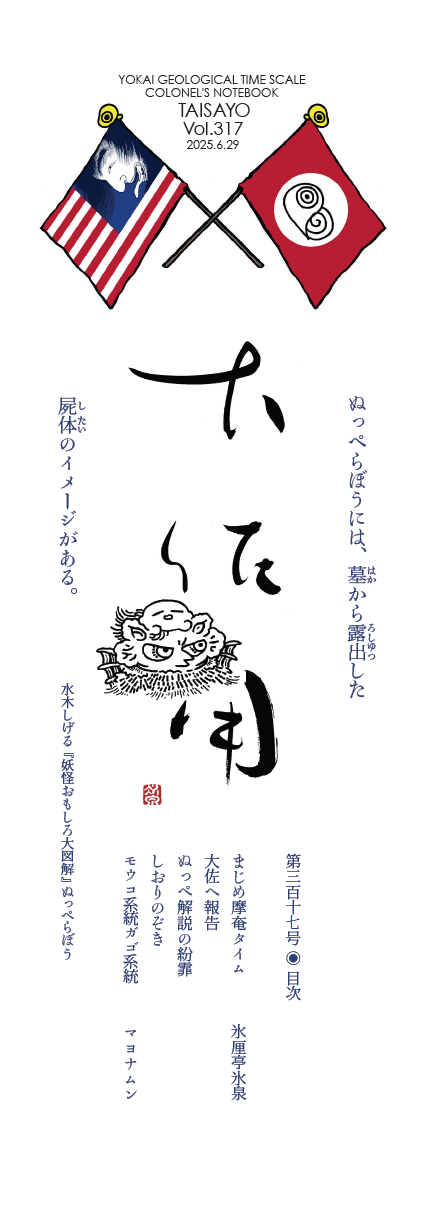 YOKAI GEOLOGICAL TIME SCALE
COLONEL'S NOTEBOOK
TAISAYO
Vol.317
2025.6.29
ぬっぺらぼうには、墓から露出した
はか
ろしゆつ
大佐用
屍体のイメージがある。
したい
水木しげる『妖怪おもしろ大図解』ぬっぺらぼう
第三百十七号◉目次
まじめ摩奄タイム 氷厘亭氷泉
大佐へ報告
ぬっぺ解説の紛霏
しおりのぞき
モウコ系統ガゴ系統 マヨナムン